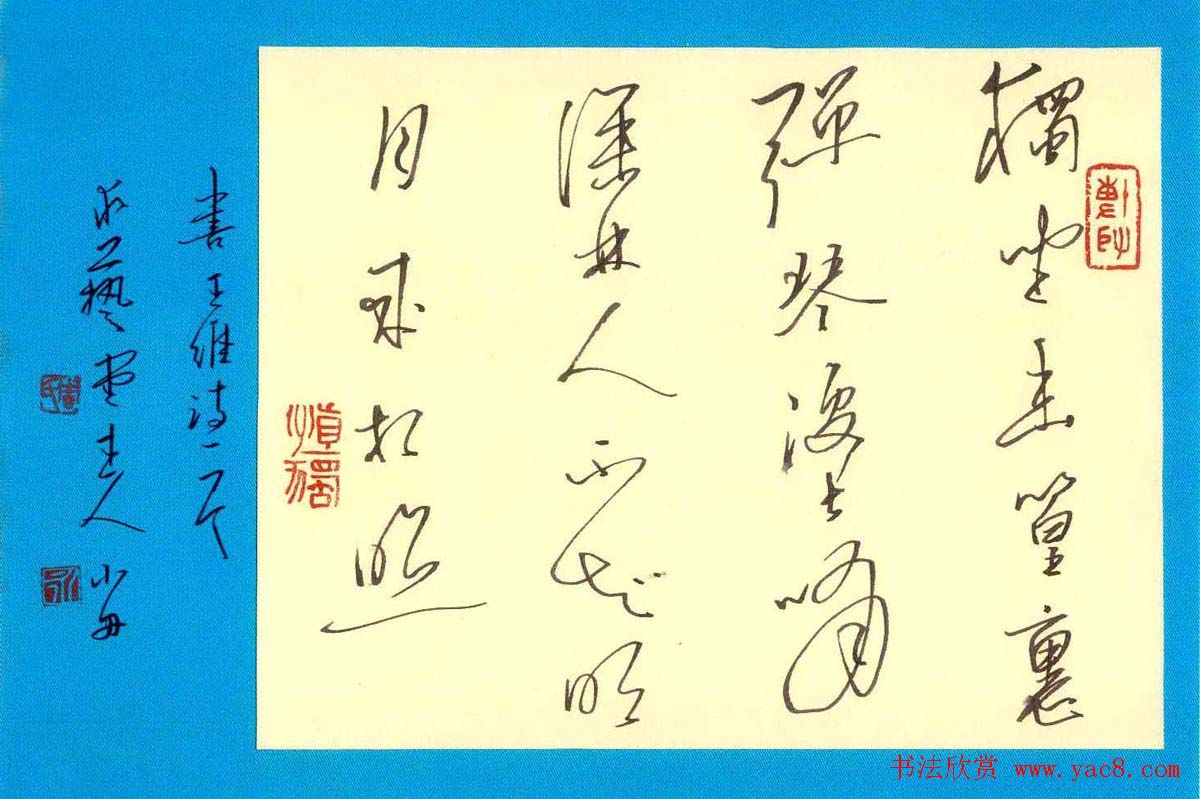 獨坐幽篁裏
彈琴復長嘯
深林人不知明
月來相照
慎獨
書王維詩一首
藝堂主人
书法欣赏 www.yac8.com